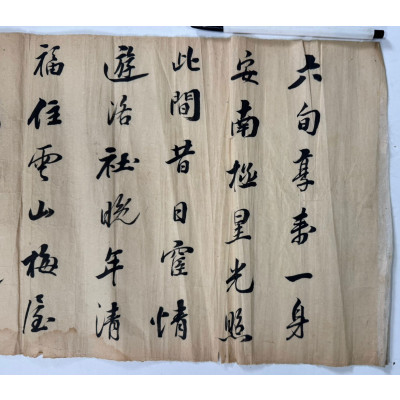 六旬享壽一身
安南極星光照
此間昔日情
遊洛社晚年清
福住雲山梅屋